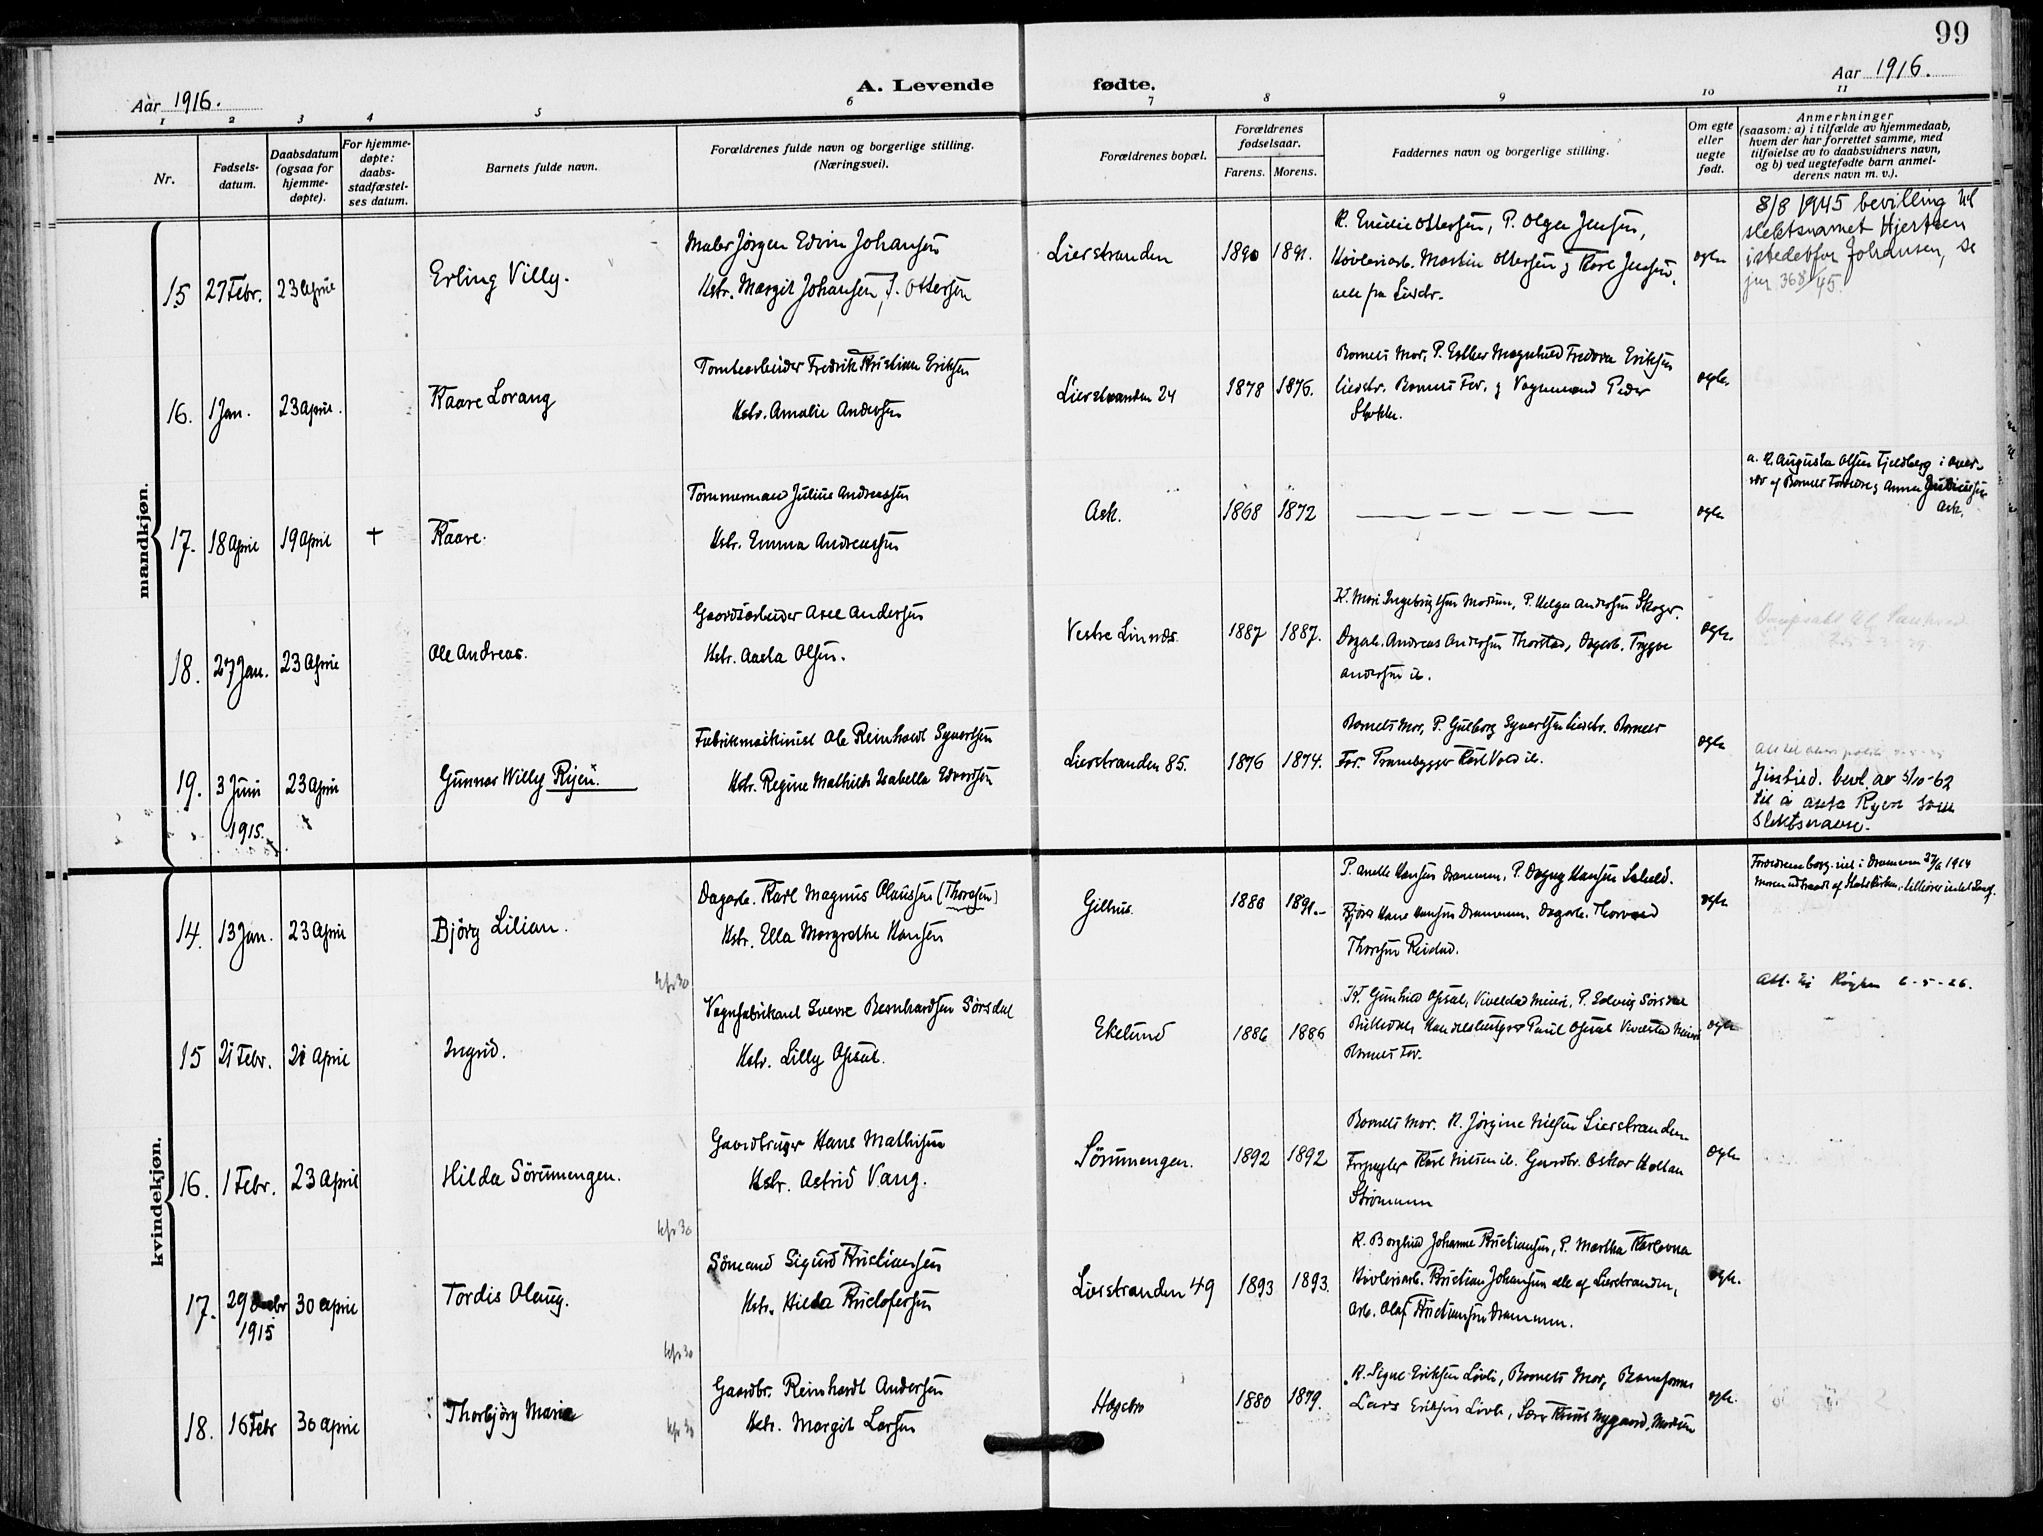 99
Aar 1916.
A. Levende fødte.
Aar 1916.
1 2 3 4 5 6 7 8 9 10 11
Nr.
Fødsels-
datum.
Daabsdatum
(ogsaa for
hjemme-
døpte).
For hjemme-
døpte:
daabs-
stadfæstel-
ses datum.
Barnets fulde navn.
Forældrenes fulde navn og borgerlige stilling.
(Næringsvei).
Forældrenes bopæl.
Forældrenes
fødselsaar.
Farens. Morens.
Faddernes navn og borgerlige stilling.
Om egte
eller
uegte
født.
Anmerkninger
(saasom: a) i tilfælde av hjemmedaab,
hvem der har forrettet samme, med
tilføielse av to daabsvidners navn,
og b) ved uegtefødte barn anmel-
derens navn m. v.).
mandkjøn.
15 27 Febr. 23 April
Erling Villy.
Maler Jørgen Edvin Johansen
Hstr. Margit Johansen, f. Ottersen
Lierstranden
1890 1891.
K. Emilie Ottersen, P. Olga Jensen,
Høvleriarb. Martin Ottersen og Karl Jensen,
alle fra Lierstr.
egte
8/8 1945 bevilling til
slektsnavnet Hjertsen
istedetfor Johansen, se
jnr. 368/45.
16. 1 Jan. 23 April.
Kaare Lorang
Tomtearbeider Fredrik Kristian Eriksen
Hstr. Amalie Andersen
Lierstranden 24
1878 1876.
Barnets Mor, P. Esther Magnhild Fredova Eriksen
Lierstr. Barnets Far. og Vognmand Peder
egte.
17. 18 April 19 April +
Kaare.
Tømmermand Julius Andreassen
Hstr. Emma Andreassen
Ask.
1868 1872
egte
a. K. Augusta Olsen Fjeldberg i Over-
vær af Barnets Forældre og Anna
Ask.
18. 27 Jan. 23 April
Ole Andreas.
Gaardsarbeider Axel Andersen
Hstr. Aasta Olsen.
Vestre Linnes
1887 1887.
K. Mari Ingebrigtsen Modum, P. Helga Andersen Skoger.
Dagarb. Andreas Andersen Thorstad, Dagarb. Trygve
Andersen ib.
egte.
19. 3 Juni 23 April
1915.
Gunnar Willy Rijen.
Fabrikmaskinist Ole Reinhardt Syvertsen
Hstr. Regine Mathilde Isabella Edvardsen
Lierstranden 85.
1876 1874.
Barnets Mor, P. Gulborg Syvertsen Lierstr. Barnets
Far. Prambygger Karl Vold ib.
egte
Justisd. bevl. av 5/10-62
til å anta Ryen som
slektsnavn.
kvindekjøn.
14. 13 Jan. 23 April
Bjørg Lilian.
Dagarb. Karl Magnus Olaussen (Thoresen)
Hstr. Ella Margrethe Hansen
Gilhus
1886 1891.
P. Anette Hansen Drammen, P. Dagny Hansen
Hansen Drammen. Dagarb. Thorvald
Thoresen
egte
Forældrene borg. viet i Drammen 1914
Moren udtraadt af Statskirken,
kfr 30
15 21 Febr. 21 April
Ingrid.
Vognfabrikant Sverre Bernhardsen Sørsdal
Hstr. Lilly Opsal.
Ekelund
1886 1886
Fr. Gunhild Opsal, Vivelstad Meieri, P. Solveig Sørsdal
Handelsbestyrer Paul Opsal Vivelstad Meieri
Barnets Far.
egte
Att. til Røyken 6-5-26.
16. 1 Febr. 23 April
Hilda Sörumengen.
Gaardbruger Hans Mathisen
Hstr. Astrid Vang.
Sörumengen.
1892 1892
Barnets Mor. K. Jørgine Nielsen Lierstranden
Karl Nielsen ib. Gaardbr. Oskar
egte
kfr 30
17. 29 30 April
1915
Tordis Olaug.
Sømand Sigurd Kristiansen
Hstr. Hilda Kristofersen
Lierstranden 49
1893 1893.
K. Borghild Johanne Kristiansen, P. Martha
Høvleriarb. Kristian Johansen alle af Lierstranden,
Arb. Olaf Kristiansen Drammen.
egte.
kfr 30
18. 16 Febr 30 April
Thorbjörg Marie
Gaardbr. Reinhardt Andersen
Hstr. Margit Larsen
kfr 30
1880 1879.
K. Signe Eriksen Lövli, Barnets Mor,
Lars Eriksen Lövli, Nygaard, Modum
egte.